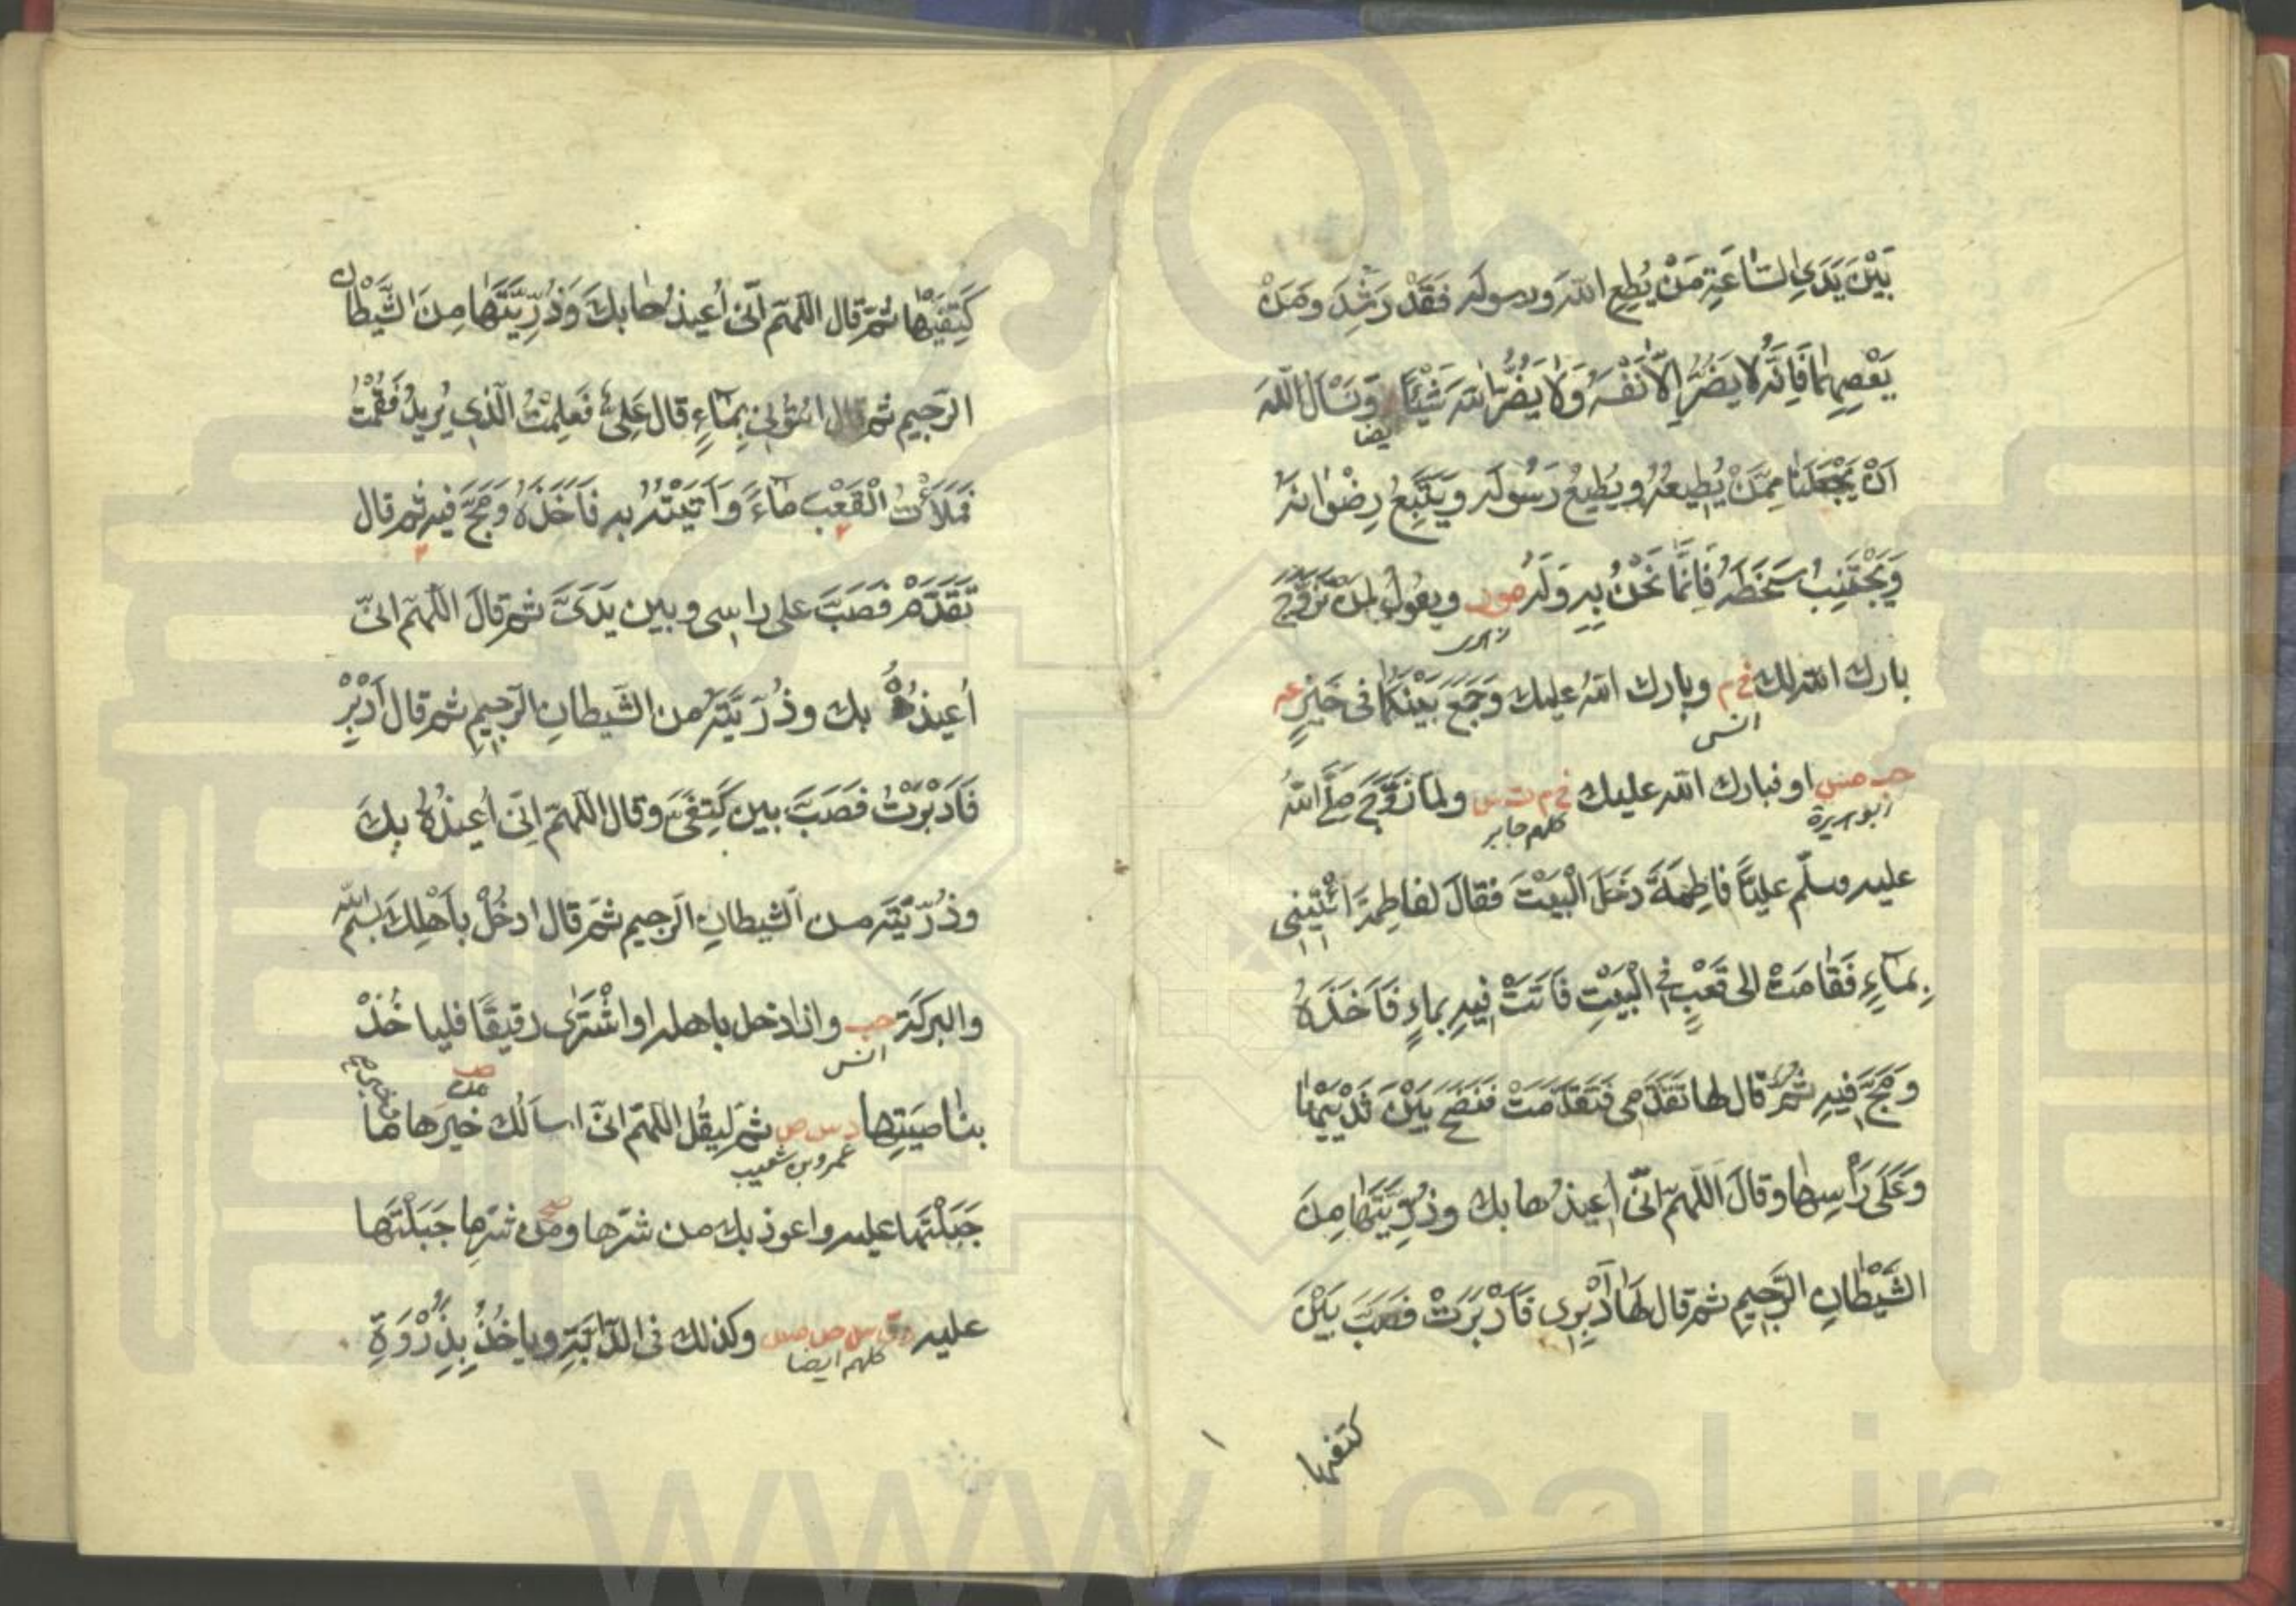 بَيْنَ يَدَيِ السَّاعَةِ مَنْ يُطِعِ اللهَ ورسوله فَقَدْ رَشِدَ ومَنْ
يَعْصِهِمَا فَاِنَّهُ لَا يَضُرُّ اِلَّا نَفْسَهُ وَلَا يَضُرُّ اللهَ شَيْئًا وَنَسْأَلُ اللهَ
ايضا
اَنْ يَجْعَلَنَا مِمَّنْ يُطِيعُهُ ويُطِيعُ رَسُولَه ويَتَّبِعُ رِضْوَانَهُ
وَيَجْتَنِبُ سَخَطَهُ فَاِنَّمَا نَحْنُ بِهِ وَلَهُ ويقول لمن تزوج
بارك الله لك خ م وبارك الله عليك وَجَمَعَ بَيْنَكُمَا فى خَيْرٍ عه
انس
حب مس او فبارك الله عليك خ م ت س ولما زَوَّجَ صلّى الله
ابو هريرة
كلهم جابر
عليه وسلّم عليًّا فاطِمَةَ دَخَلَ الْبَيْتَ فقالَ لفاطِمة ائْتِيني
بِمَاءٍ فَقَامَتْ الى قَعْبٍ فى الْبَيْتِ فَاَتَتْ فِيهِ بماءٍ فَاَخَذَهُ
ومَجَّ فيه ثُمَّ قال لها تَقَدَّمِى فَتَقَدَّمَتْ فَنَضَحَ بَيْنَ ثَدْيَيْهَا
وَعَلَى رَأْسِهَا وقالَ اَللّهمّ انّى اُعيذُها بك وذُرِّيَّتَهَا مِنَ
الشَّيْطَانِ الرَّجيمِ ثم قال لَهَا اَدْبِرِى فَاَدْبَرَتْ فَصَبَّ بَيْنَ
كتفيها
كَتِفَيْهَا ثُمَّ قال اللّهمّ اِنّى اُعيذُها بكَ وَذُرِّيَّتَهَا مِنَ الشَّيْطَانِ
الرَّجِيمِ ثم قال ائتونى بِمَاءٍ قال عَلِىٌّ فَعَلِمْتُ الَّذِى يُرِيدُ فَقُمْتُ
فَمَلَأْتُ الْقَعْبَ مَاءً وَاَتَيْتُهُ به فَاَخَذَهُ وَمَجَّ فيه ثم قال
تَقَدَّمْ فَصَبَّ على راسِى وبين يَدَىَّ ثم قالَ اللّهمّ انّى
اُعيذُهُ بك وذُرِّيَّتَه من الشّيطانِ الرّجيمِ ثم قال اَدْبِرْ
فَاَدْبَرْتُ فَصَبَّ بين كَتِفَىَّ وقال اللّهمّ اِنّى اُعيذُهُ بِكَ
وذُرِّيَّتَه من الشّيطانِ الرّجيم ثمّ قال ادخُلْ بأَهْلِكَ بسم الله
والبركة حب واذا دخل باهله او اشْتَرَى رقيقًا فليا خُذْ
انس
بناصِيَتِها د س ص ثم لِيَقُلْ اللّهمّ انّى اسألك خيرَها
عمرو بن شعيب
جَبَلْتَها عليه واعوذ بك من شرّها ومن شرّها جَبَلْتَها
عليه د ق س ص مس وكذلك فى الدّابّةِ وياخُذُ بِذُرْوَةِ
كلهم ايضا